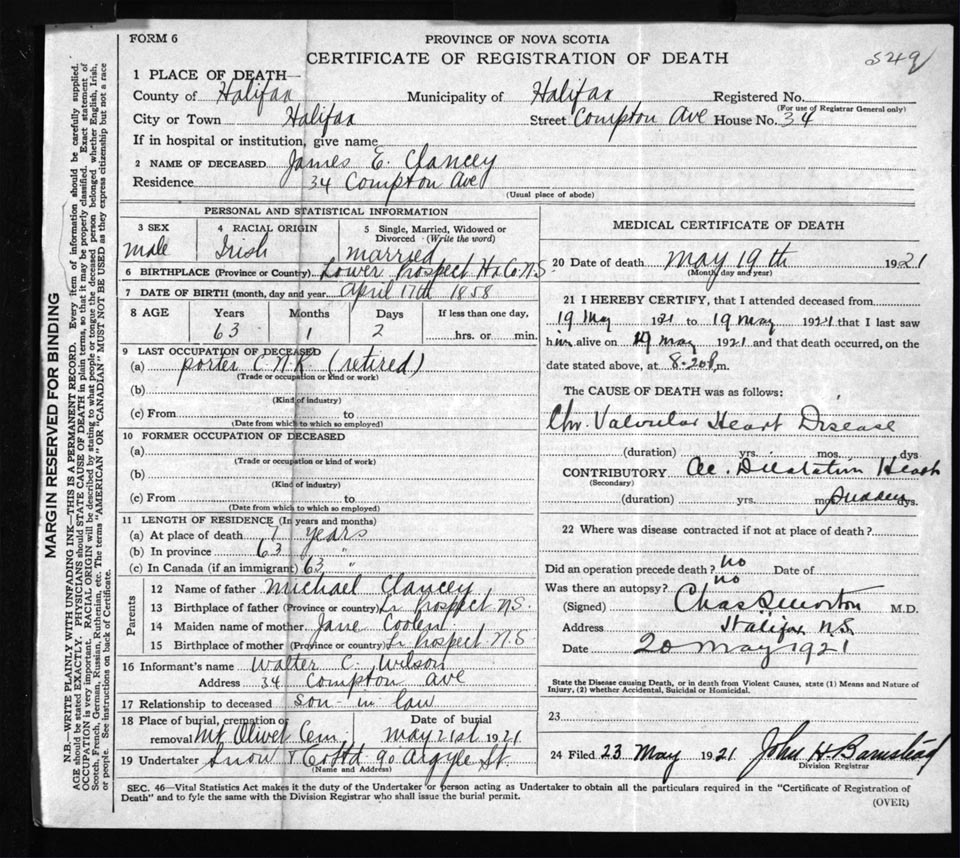 FORM 6
PROVINCE OF NOVA SCOTIA
CERTIFICATE OF REGISTRATION OF DEATH
549
1 PLACE OF DEATH—
County of Halifax Municipality of Halifax Registered No.
(For use of Registrar General only)
City or Town Halifax Street Compton Ave House No. 34
If in hospital or institution, give name
2 NAME OF DECEASED James E. Clancey
Residence 34 Compton Ave
(Usual place of abode)
PERSONAL AND STATISTICAL INFORMATION
3 SEX 4 RACIAL ORIGIN 5 Single, Married, Widowed or
Divorced (Write the word)
male Irish married
6 BIRTHPLACE (Province or Country) Lower Prospect Hx Co N.S.
7 DATE OF BIRTH (month, day and year) April 17th 1858
8 AGE Years Months Days If less than one day,
63 1 2 hrs. or min.
9 LAST OCCUPATION OF DECEASED
(a) porter C.N.R. (retired)
(Trade or occupation or kind or work)
(b)
(Kind of industry)
(c) From to
(Date from which to which so employed)
10 FORMER OCCUPATION OF DECEASED
(a)
(Trade or occupation or kind of work)
(b)
(Kind of industry)
(c) From to
(Date from which to which so employed)
11 LENGTH OF RESIDENCE (In years and months)
(a) At place of death 7 years
(b) In province 63 "
(c) In Canada (if an immigrant) 63 "
Parents
12 Name of father Michael Clancey
13 Birthplace of father (Province or country) Lr Prospect N.S.
14 Maiden name of mother Jane Coolen
15 Birthplace of mother (Province or country) Lr Prospect N.S
16 Informant's name Walter C. Wilson
Address 34 Compton Ave
17 Relationship to deceased son-in law
18 Place of burial, cremation or Date of burial
removal Mt Olivet Cem. May 21st 1921
19 Undertaker Snow & Co Ltd 90 Argyle St.
(Name and Address)
MEDICAL CERTIFICATE OF DEATH
20 Date of death May 19th 1921
(Month, day and year)
21 I HEREBY CERTIFY, that I attended deceased from
19 May 1921 to 19 May 1921 that I last saw
him alive on 19 May 1921 and that death occurred, on the
date stated above, at 8.20 P.m.
The CAUSE OF DEATH was as follows:
Chr. Valvular Heart Disease
(duration) yrs. mos. dys
CONTRIBUTORY Ac. Dilatation Heart
(Secondary)
(duration) yrs. mos sudden dys.
22 Where was disease contracted if not at place of death?
Did an operation precede death? no Date of
Was there an autopsy? no
(Signed) Chas S Morton M.D.
Address Halifax N.S.
Date 20 May 1921
State the Disease causing Death, or in death from Violent Causes, state (1) Means and Nature of
Injury, (2) whether Accidental, Suicidal or Homicidal.
23
24 Filed 23 May 1921 John H. Barnstead
Division Registrar
SEC. 46—Vital Statistics Act makes it the duty of the Undertaker or person acting as Undertaker to obtain all the particulars required in the "Certificate of Registration of
Death" and to fyle the same with the Division Registrar who shall issue the burial permit.
(OVER)
MARGIN RESERVED FOR BINDING
N.B.—WRITE PLAINLY WITH UNFADING INK—THIS IS A PERMANENT RECORD. Every item of information should be carefully supplied.
AGE should be stated EXACTLY. PHYSICIANS should STATE CAUSE OF DEATH in plain terms, so that it may be properly classified. Exact statement of
OCCUPATION is very important. RACIAL ORIGIN will be described by stating to what people or tongue the deceased person belonged whether English, Irish,
Scotch, French, German, Russian, Ruthenian, etc. The terms "AMERICAN" OR "CANADIAN" MUST NOT BE USED as they express citizenship but not a race
or people. See instructions on back of Certificate.